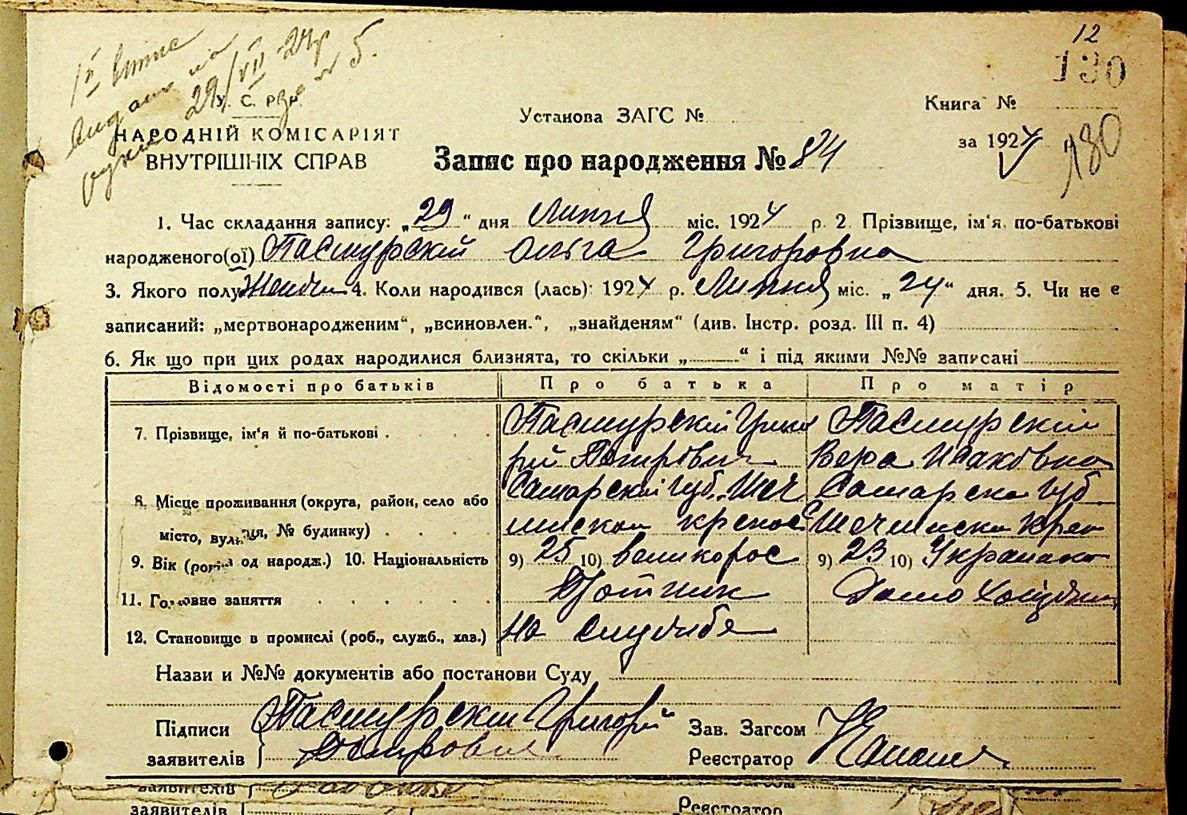 12
130
180
1й випис
29/VII 24р
№ 5.
У. С. Р. Р.
НАРОДНІЙ КОМІСАРІЯТ
ВНУТРІШНІХ СПРАВ
Установа ЗАГС №
Книга №
за 1924 р.
Запис про народження № 84
1. Час складання запису: „29“ дня Липня міс. 1924 р. 2. Прізвище, ім'я, по-батькові
народженого(ої) Пасмурскій Ольга Григоровна
3. Якого полу 4. Коли народився (лась): 1924 р. Липня міс. „24“ дня. 5. Чи не є
записаний: „мертвонародженим“, „всиновлен.“, „знайденям“ (див. Інстр. розд. III п. 4)
6. Як що при цих родах народилися близнята, то скільки „ “ і під якими №№ записані
Відомості про батьків Про батька Про матір
7. Прізвище, ім'я й по-батькові Пасмурскій Григо Пасмурскій
рій Вера Исаковна
8. Місце проживання (округа, район, село або Самарскій губ. Самарска губ
місто, вулиця, № будинку)
9. Вік (років од народж.) 10. Національність 9) 25 10) великорос 9) 23 10) Украинка
11. Головне заняття Плотник
12. Становище в промислі (роб., служб., хаз.) на службе
Назви и №№ документів або постанови Суду
Підписи Пасмурскій Григорій Зав. Загсом
заявителів Реєстратор
заявителів
заявителів Реєстратор